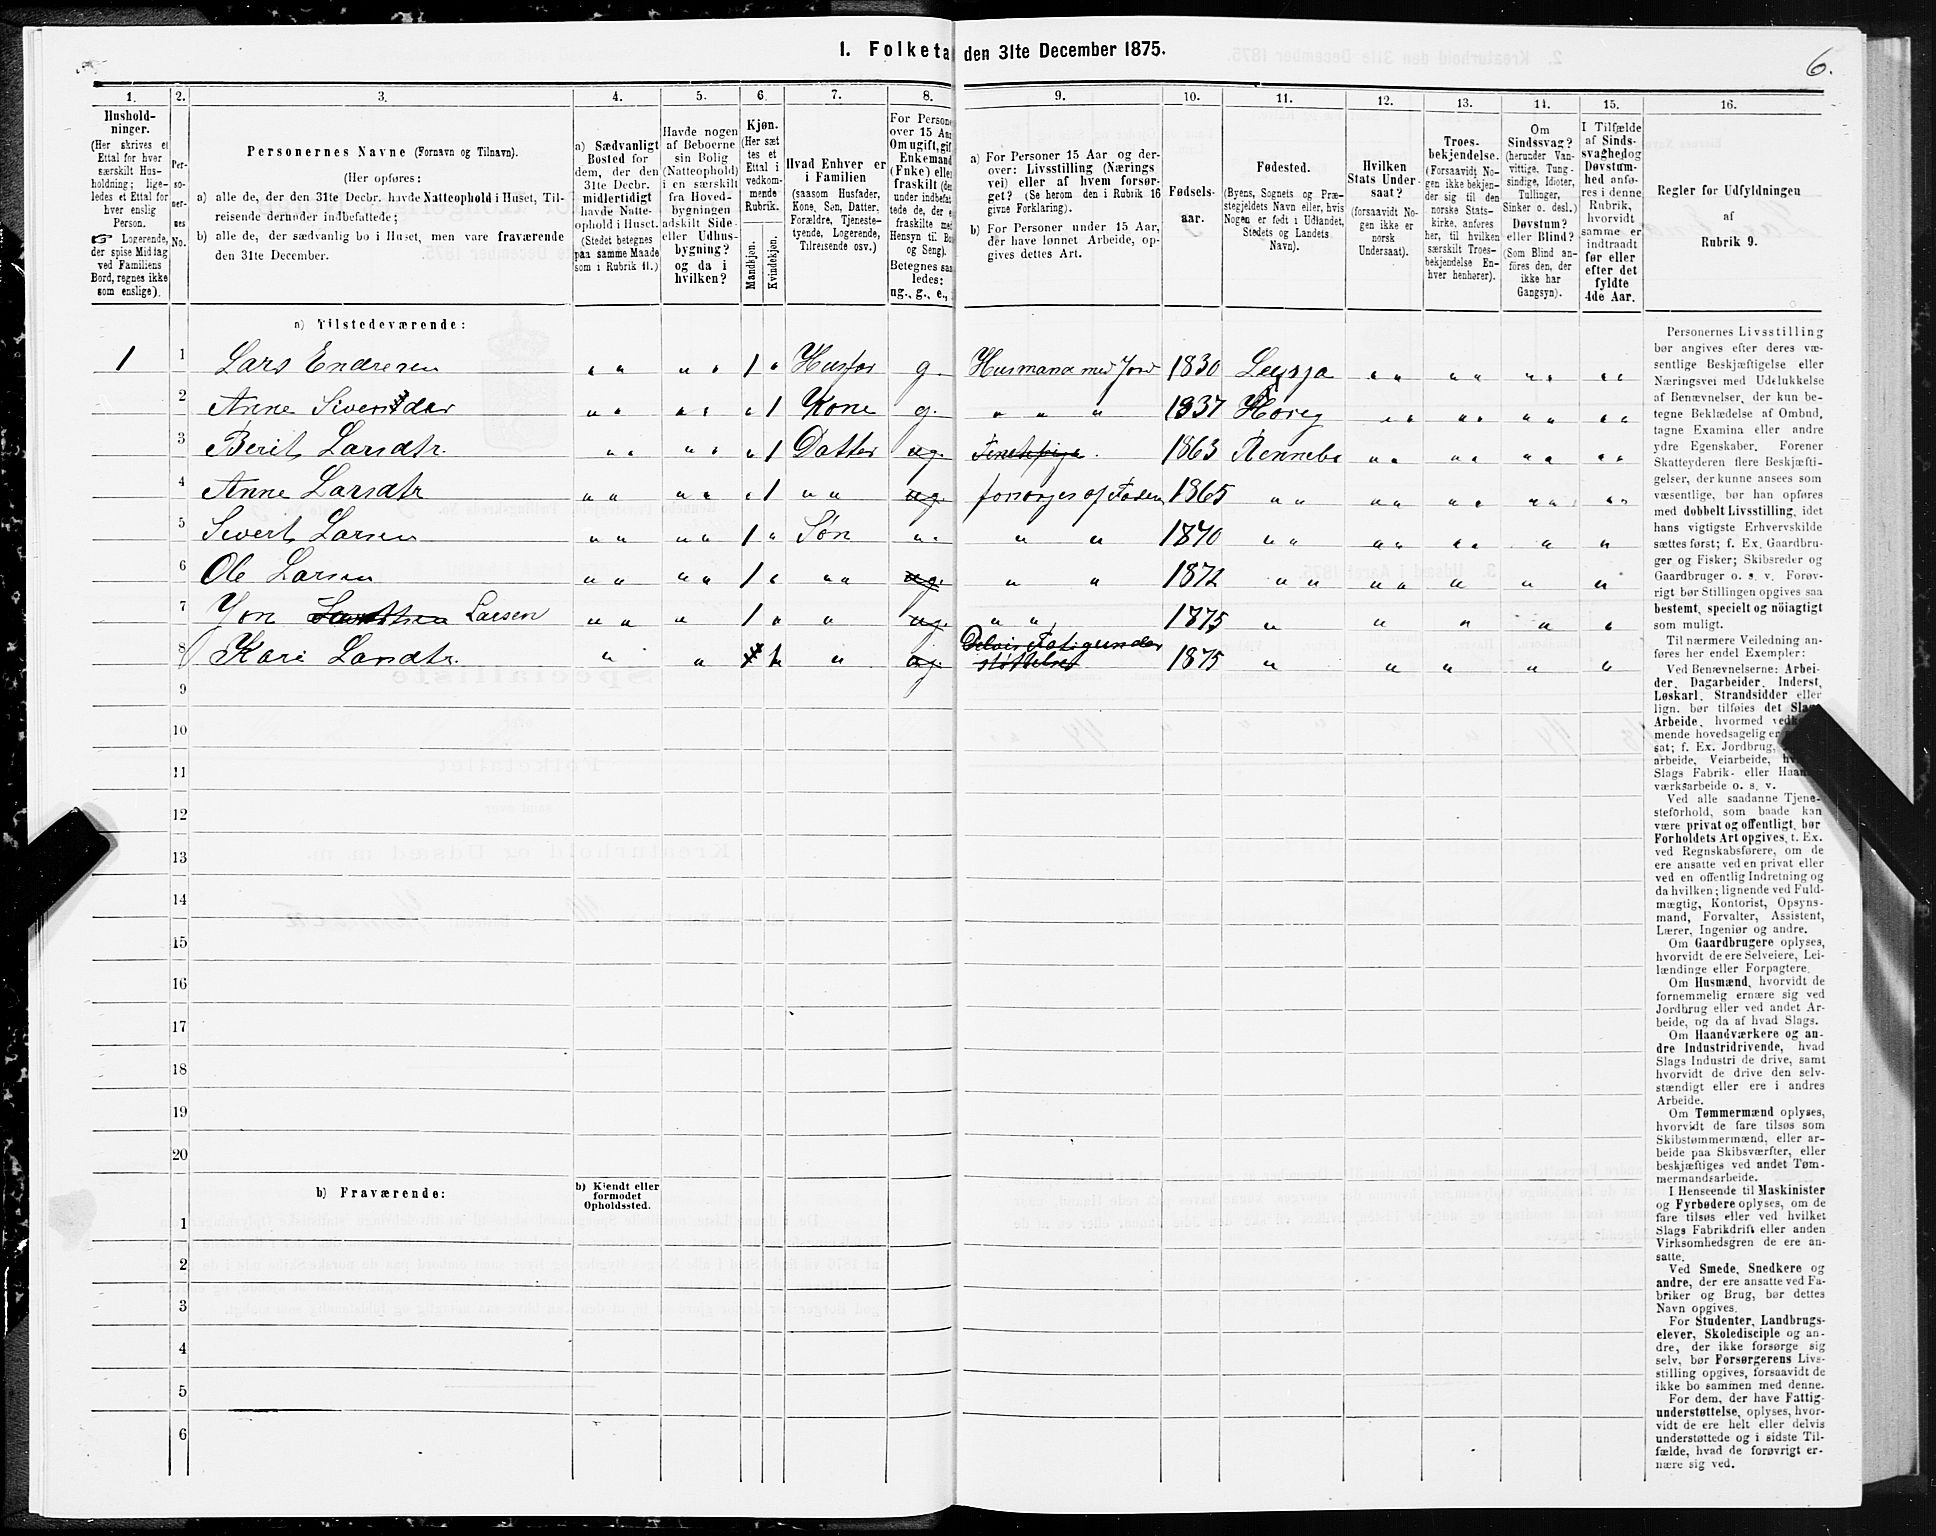 1. Folketa den 31te December 1875.
6.
1.
2.
3.
4.
5.
6.
7.
8.
9.
10.
11.
12.
13.
14.
15.
16.
Hushold-
ninger.
(Her skrives et
Ettal for hver
særskilt Hus-
holdning; lige-
ledes et Ettal for
hver enslig
Person.
☞ Logerende,
der spise Middag
ved Familiens
Bord, regnes ikke
som enslige).
Per-
so-
ner-
nes
No.
Personernes Navne (Fornavn og Tilnavn).
(Her opføres:
a) alle de, der den 31te Decbr. havde Natteophold i Huset, Til-
reisende derunder indbefattede;
b) alle de, der sædvanlig bo i Huset, men vare fraværende
den 31te December.
a) Sædvanligt
Bosted for
dem, der den
31te Decbr.
midlertidigt
havde Natte-
ophold i Huset.
(Stedet betegnes
paa samme Maade
som i Rubrik 11.)
Havde nogen
af Beboerne
sin Bolig
(Natteophold)
i en særskilt
fra Hoved-
bygningen
adskilt Side-
eller Udhus-
bygning?
og da i
hvilken?
Kjøn.
(Her sæt
tes et
Ettal i
vedkom-
mende
Rubrik.
Mandkjøn.
Kvindekjøn.
Hvad Enhver er
i Familien
(saasom Husfader,
Kone, Søn, Datter,
Forældre, Tjeneste-
tyende, Logerende,
Tilreisende osv.)
For Persone
over 15 Aar
Om ugift, gif
Enkemand
(Enke) elle
fraskilt (de
under indbefat
tede de, der e
fraskilte med
Hensyn til Bo
og Seng).
Betegnes saa
ledes:
ug., g., e.,
a) For Personer 15 Aar og der-
over: Livsstilling (Nærings
vei) eller af hvem forsør-
get? (Se herom den i Rubrik 16
givne Forklaring).
b) For Personer under 15 Aar,
der have lønnet Arbeide, op-
gives dettes Art.
Fødsels-
aar.
Fødested.
(Byens, Sognets og Præ-
stegjeldets Navn eller, hvis
Nogen er født i Udlandet,
Stedets og Landets
Navn).
Hvilken
Stats Under-
saat?
(forsaavidt No-
gen ikke er
norsk
Undersaat).
Troes-
bekjendelse.
(Forsaavidt No-
gen ikke bekjen-
der sig til den
norske Stats-
kirke, anføres
her, til hvilken
særskilt Troes-
bekjendelse En-
hver henhører).
Om
Sindssvag?
(herunder Van-
vittige, Tung-
sindige, Idioter,
Tullinger,
Sinker o. desl.)
Døvstum?
eller Blind?
(Som Blind an-
føres den, der
ikke har
Gangsyn).
I Tilfælde
af Sinds-
svaghed og
Døvstum-
hed anfø-
res i denne
Rubrik,
hvorvidt
samme er
indtraadt
før eller
efter det
fyldte
4de Aar.
Regler for Udfyldningen
af
Rubrik 9.
a) Tilstedeværende:
1 1 Lars Endresen „ „ „ „ 1 „ Husfar g. Husmand med Jord 1830 „ „ „ „ „ „ „ „
2 Anne „ „ „ „ „ 1 Kone g. „ „ „ 1837 Horeg „ „ „ „ „ „ „ „
3 Berit Larsdtr. „ „ „ „ „ 1 Datter ug. 1863 Rennebo „ „ „ „ „ „ „ „
4 Anne Larsdtr „ „ „ „ „ 1 „ „ ug. forsørges af Faderen 1865 „ „ „ „ „ „ „ „ „ „
5 Sivert Larsen „ „ „ „ 1 „ Søn „ „ „ 1870 „ „ „ „ „ „ „ „
6 Ole Larsen „ „ „ „ 1 „ „ „ ug. „ „ 1872 „ „ „ „ „ „ „
7 Jon Larsen „ „ „ 1 „ „ ug. „ „ 1875 „ „ „ „ „
8 Kari Larsdtr. „ „ 1 „ ug. Delvis Fattigunder
støttelse 1875 „ „ „ „ „
9
10
11
12
13
14
15
16
17
18
19
20
b) Fraværende:
b) Kjendt eller
formodet
Opholdssted.
1
2
3
4
5
6
Personernes Livsstilling
bør angives efter deres væ-
sentlige Beskjæftigelse eller
Næringsvei med Udelukkelse
af Benævnelser, der kun be-
tegne Beklædelse af Ombud,
tagne Examina eller andre
ydre Egenskaber. Forener
Skatteyderen flere Beskjæfti-
gelser, der kunne ansees som
væsentlige, bør han opføres
med dobbelt Livsstilling, idet
hans vigtigste Erhvervskilde
sættes først; f. Ex. Gaardbru-
ger og Fisker; Skibsreder og
Gaardbruger o. s. v. Forøv-
rigt bør Stillingen opgives saa
bestemt, specielt og nöiagtigt
som muligt.
Til nærmere Veiledning an-
føres her endel Exempler:
Ved Benævnelserne: Arbei-
der, Dagarbeider, Inderst,
Løskarl, Strandsidder eller
lign. bør tilføies det Slags
Arbeide, hvormed vedk
mende hovedsagelig er
sat; f. Ex. Jordbrug,
arbeide, Veiarbeide, h
Slags Fabrik- eller Haan
værksarbeide o. s. v.
Ved alle saadanne Tjene-
steforhold, som baade kan
være privat og offentlig, bør
Forholdets Art opgives, t. Ex.
ved Regnskabsførere, om de
ere ansatte ved en privat eller
ved en offentlig Indretning og
da hvilken; lignende ved Fuld-
mægtig, Kontorist, Opsyns-
mand, Forvalter, Assistent,
Lærer, Ingeniør og andre.
Om Gaardbrugere oplyses,
hvorvidt de ere Selveiere, Lei-
lændinge eller Forpagtere.
Om Husmænd, hvorvidt de
fornemmelig ernære sig ved
Jordbrug eller ved andet Ar-
beide, og da af hvad Slags.
Om Haandværkere og an-
dre Industridrivende, hvad
Slags Industri de drive, samt
hvorvidt de drive den selv-
stændigt eller ere i andres
Arbeide.
Om Tømmermænd oplyses,
hvorvidt de fare tilsøs som
Skibstømmermænd, eller ar-
beide paa Skibsværfter, eller
beskjæftiges ved andet Tøm-
mermandsarbeide.
I Henseende til Maskinister
og Fyrbødere oplyses, om de
fare tilsøs eller ved hvilket
Slags Fabrikdrift eller anden
Virksomhedsgren de ere an-
satte.
Ved Smede, Snedkere og
andre, der ere ansatte ved Fa-
briker og Brug, bør dettes
Navn opgives.
For Studenter, Landbrugs-
elever, Skoledisciple og an-
dre, der ikke forsørge sig
selv, bør Forsørgerens Livs-
stilling opgives, forsaavidt de
ikke bo sammen med denne.
For dem, der have Fattig-
understøttelse, oplyses, hvor-
vidt de ere helt eller delvis
understøttede og i sidste Til-
fælde, hvad de forøvrigt er-
nære sig ved.